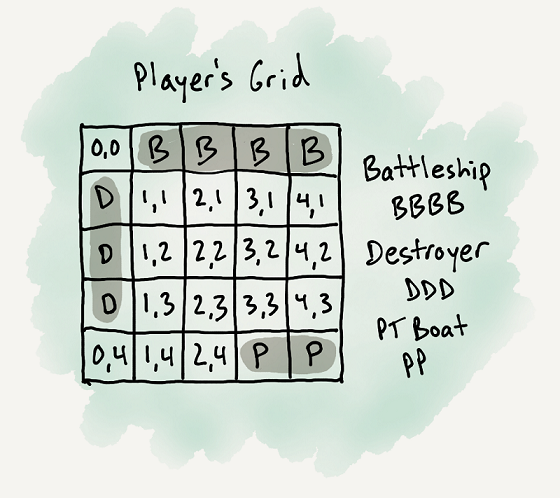 Player's Grid
0,0 B B B B
D 1,1 2,1 3,1 4,1
D 1,2 2,2 3,2 4,2
D 1,3 2,3 3,3 4,3
0,4 1,4 2,4 P P
Battleship
BBBB
Destroyer
DDD
PT Boat
PP